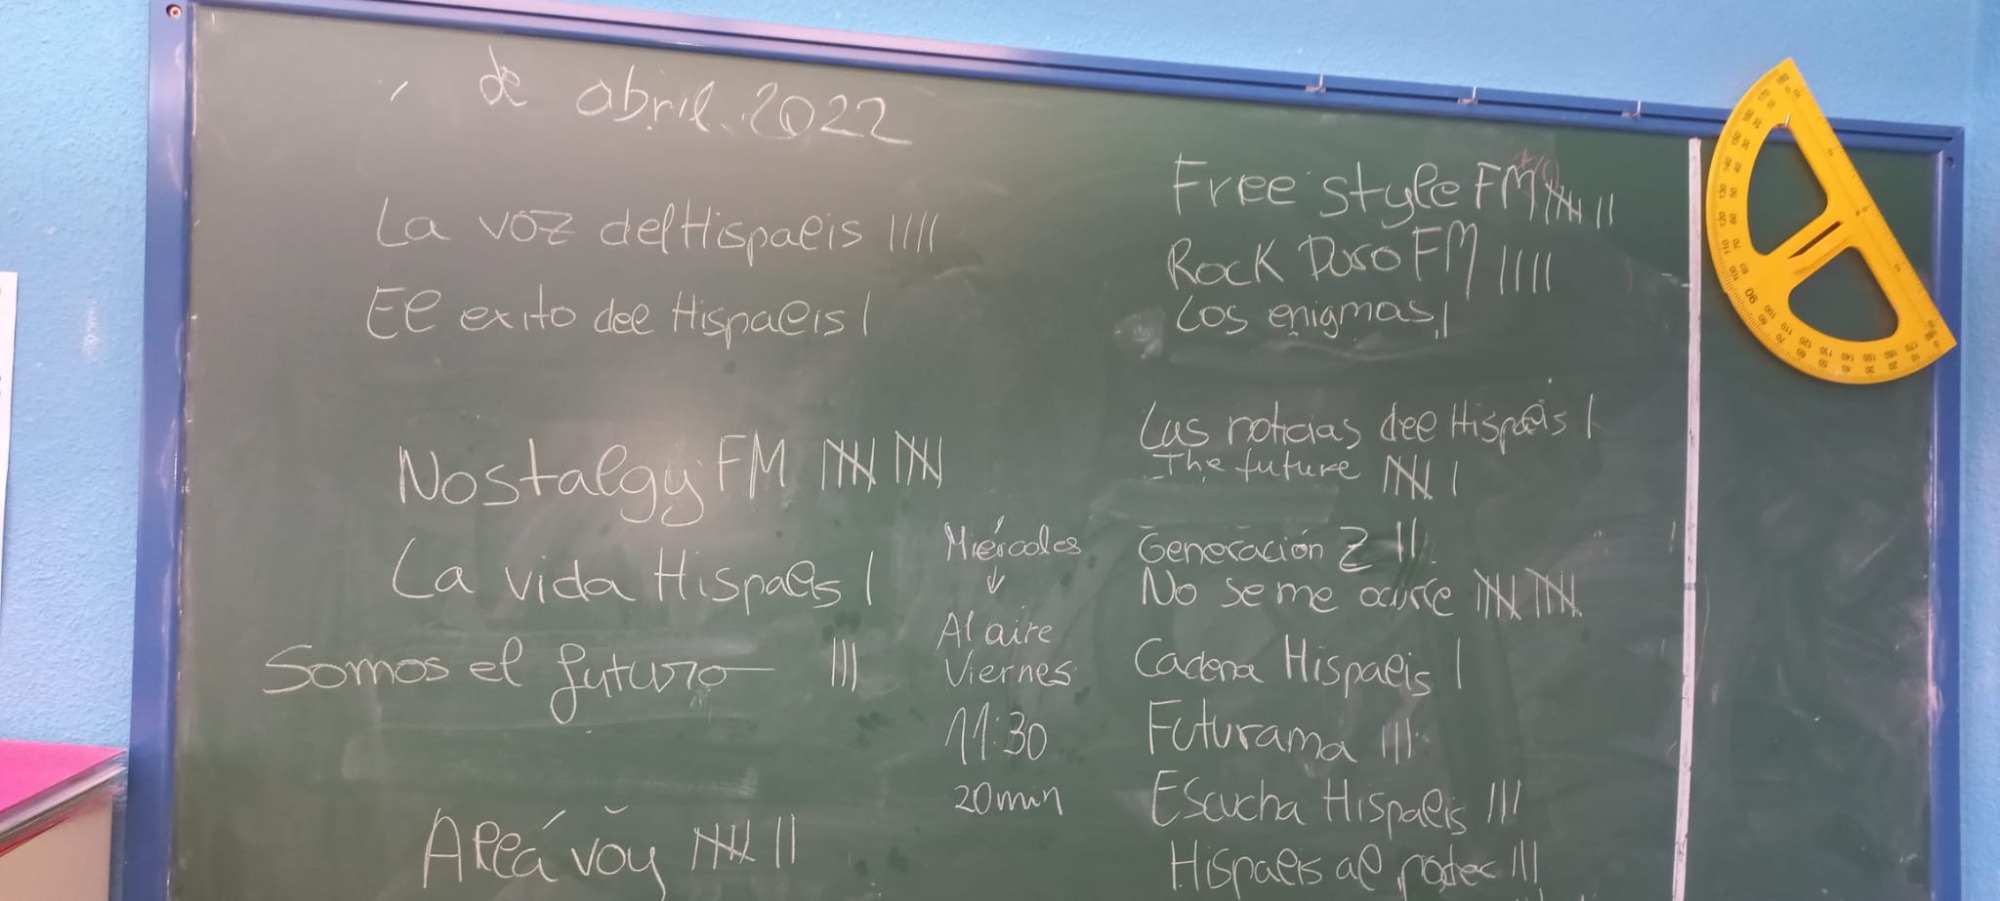 de abril 2022
La voz del Hispalis ||||
El exito del Hispalis |
Nostalgy FM |||| ||||
La vida Hispalis |
Somos el futuro |||
Allá voy |||| ||
Miércoles
↓
Al aire
Viernes
11:30
20 min
Free Style FM |||| ||
Rock Duro FM ||||
Los enigmas |
Las noticias del Hispalis |
The future |||| |
Generación Z ||
No se me ocurre |||| ||||
Cadena Hispalis |
Futurama |||
Escucha Hispalis |||
Hispalis al poder |||